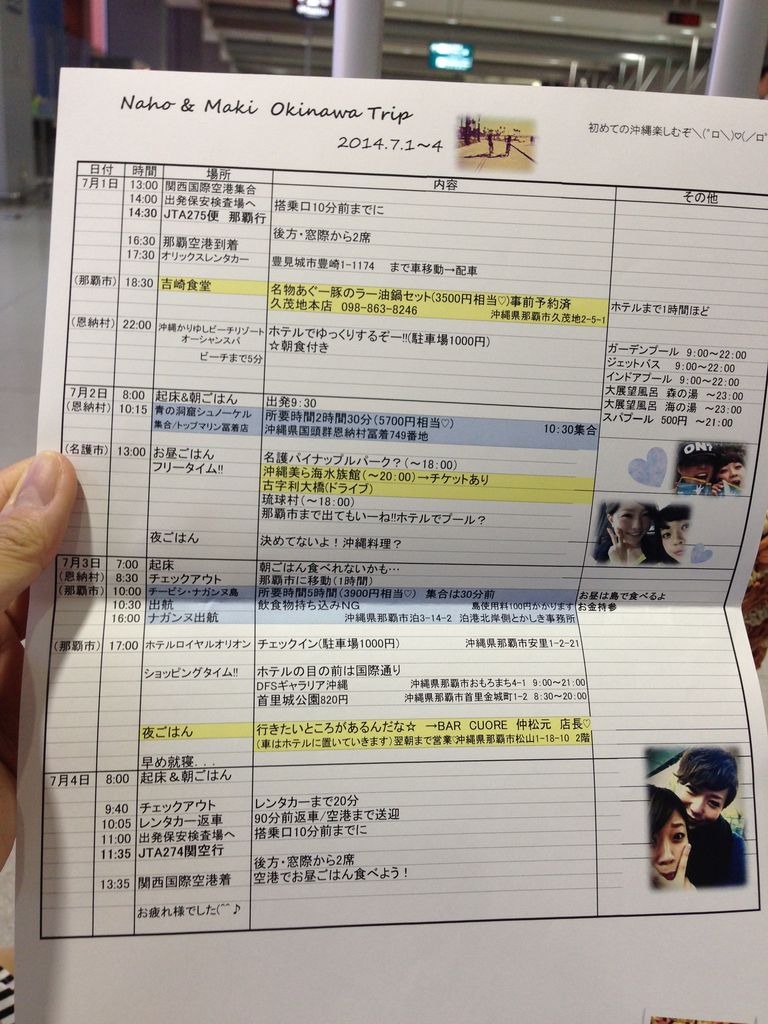 Naho & Maki Okinawa Trip
2014.7.1~4
初めての沖縄楽しむぞ＼(ﾟロ＼)♡(／ロﾟ
日付 時間 場所 内容 その他
7月1日 13:00 関西国際空港集合
14:00 出発保安検査場へ 搭乗口10分前までに
14:30 JTA275便 那覇行
後方・窓際から2席
16:30 那覇空港到着
17:30 オリックスレンタカー 豊見城市豊崎1-1174 まで車移動→配車
(那覇市) 18:30 吉崎食堂 名物あぐー豚のラー油鍋セット(3500円相当♡)事前予約済
久茂地本店 098-863-8246 沖縄県那覇市久茂地2-5-1 ホテルまで1時間ほど
(恩納村) 22:00 沖縄かりゆしビーチリゾート ホテルでゆっくりするぞー!!(駐車場1000円)
オーシャンスパ ☆朝食付き
ビーチまで5分
ガーデンプール 9:00～22:00
ジェットバス 9:00～22:00
インドアプール 9:00～22:00
大展望風呂 森の湯 ～23:00
大展望風呂 海の湯 ～23:00
スパプール 500円 ～21:00
7月2日 8:00 起床&朝ごはん 出発9:30
(恩納村) 10:15 青の洞窟シュノーケル 所要時間2時間30分(5700円相当♡) 10:30集合
集合/トップマリン冨着店 沖縄県国頭群恩納村冨着749番地
(名護市) 13:00 お昼ごはん 名護パイナップルパーク？(～18:00)
フリータイム!! 沖縄美ら海水族館(～20:00)→チケットあり
古宇利大橋(ドライブ)
琉球村(～18:00)
那覇市まで出てもいーね!!ホテルでプール？
夜ごはん 決めてないよ！沖縄料理？
7月3日 7:00 起床 朝ごはん食べれないかも…
(恩納村) 8:30 チェックアウト 那覇市に移動(1時間)
(那覇市) 10:00 チービシ・ナガンヌ島 所要時間5時間(3900円相当♡) 集合は30分前 お昼は島で食べるよ
10:30 出航 飲食物持ち込みNG 島使用料100円かかります お金持参
16:00 ナガンヌ出航 沖縄県那覇市泊3-14-2 泊港北岸側とかしき事務所
(那覇市) 17:00 ホテルロイヤルオリオン チェックイン(駐車場1000円) 沖縄県那覇市安里1-2-21
ショッピングタイム!! ホテルの目の前は国際通り
DFSギャラリア沖縄 沖縄県那覇市おもろまち4-1 9:00～21:00
首里城公園820円 沖縄県那覇市首里金城町1-2 8:30～20:00
夜ごはん 行きたいところがあるんだな☆ →BAR CUORE 仲松元 店長♡
(車はホテルに置いていきます)翌朝まで営業♡沖縄県那覇市松山1-18-10 2階
早め就寝...
7月4日 8:00 起床&朝ごはん
9:40 チェックアウト レンタカーまで20分
10:05 レンタカー返車 90分前返車/空港まで送迎
11:00 出発保安検査場へ 搭乗口10分前までに
11:35 JTA274関空行
後方・窓際から2席
13:35 関西国際空港着 空港でお昼ごはん食べよう！
お疲れ様でした(^^♪